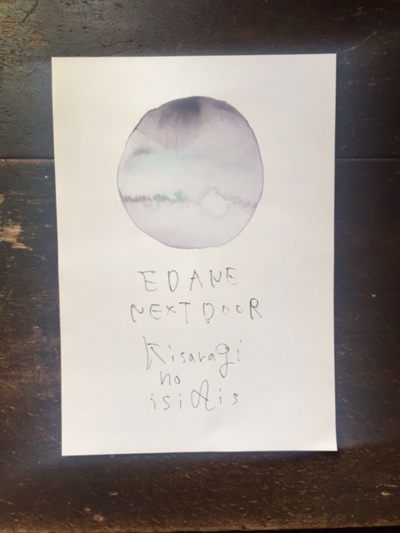 EDANE
NEXT DOOR
Kisaragi
no